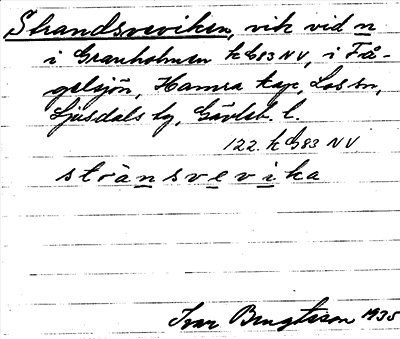 Strandsveviken, vik vid n
i Granholmen k G83 NV, i Få-
gelsjön, Hamra kap, Los sn,
Ljusdals tg, Gävleb. l.
122. k G83 NV
stränsvevika
Ivar Bengtsson 1935